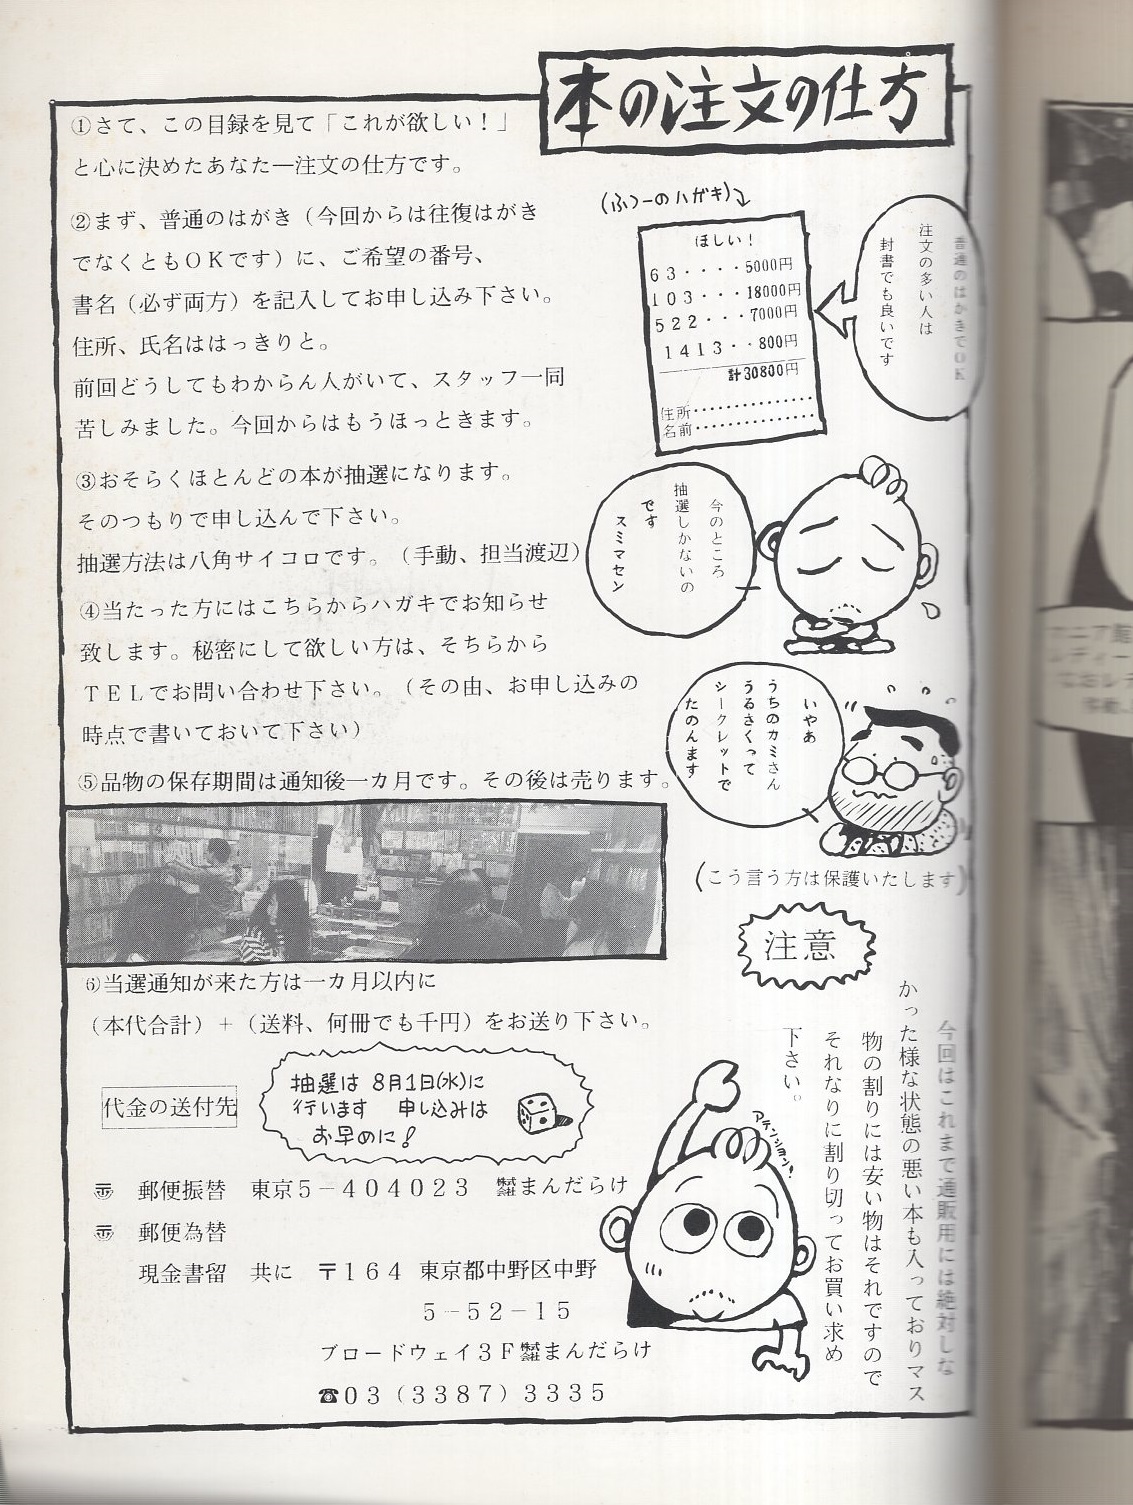 本の注文の仕方
①さて、この目録を見て「これが欲しい！」
と心に決めたあなた―注文の仕方です。
②まず、普通のはがき（今回からは往復はがき
でなくともＯＫです）に、ご希望の番号、
書名（必ず両方）を記入してお申し込み下さい。
住所、氏名ははっきりと。
前回どうしてもわからん人がいて、スタッフ一同
苦しみました。今回からはもうほっときます。
③おそらくほとんどの本が抽選になります。
そのつもりで申し込んで下さい。
抽選方法は八角サイコロです。（手動、担当渡辺）
④当たった方にはこちらからハガキでお知らせ
致します。秘密にして欲しい方は、そちらから
ＴＥＬでお問い合わせ下さい。（その由、お申し込みの
時点で書いておいて下さい）
⑤品物の保存期間は通知後一カ月です。その後は売ります。
(ふつーのハガキ)
ほしい！
63・・・・5000円
103・・・18000円
522・・・7000円
1413・・800円
計30800円
住所・・・・・・・・・・・・
名前・・・・・・・・・・・・
普通のはがきでＯＫ
注文の多い人は
封書でも良いです
今のところ
抽選しかないの
です
スミマセン
いやあ
うちのカミさん
うるさくって
シークレットで
たのんます
(こう言う方は保護いたします)
注意
今回はこれまで通販用には絶対しな
かった様な状態の悪い本も入っておりマス
物の割りには安い物はそれですので
それなりに割り切ってお買い求め
下さい。
アテンション！
⑥当選通知が来た方は一カ月以内に
（本代合計）＋（送料、何冊でも千円）をお送り下さい。
代金の送付先
抽選は 8月1日(水)に
行います 申し込みは
お早めに！
郵便振替 東京５－４０４０２３ 株式会社まんだらけ
郵便為替
現金書留 共に 〒１６４ 東京都中野区中野
５－５２－１５
ブロードウェイ３Ｆ株式会社まんだらけ
☎０３（３３８７）３３３５